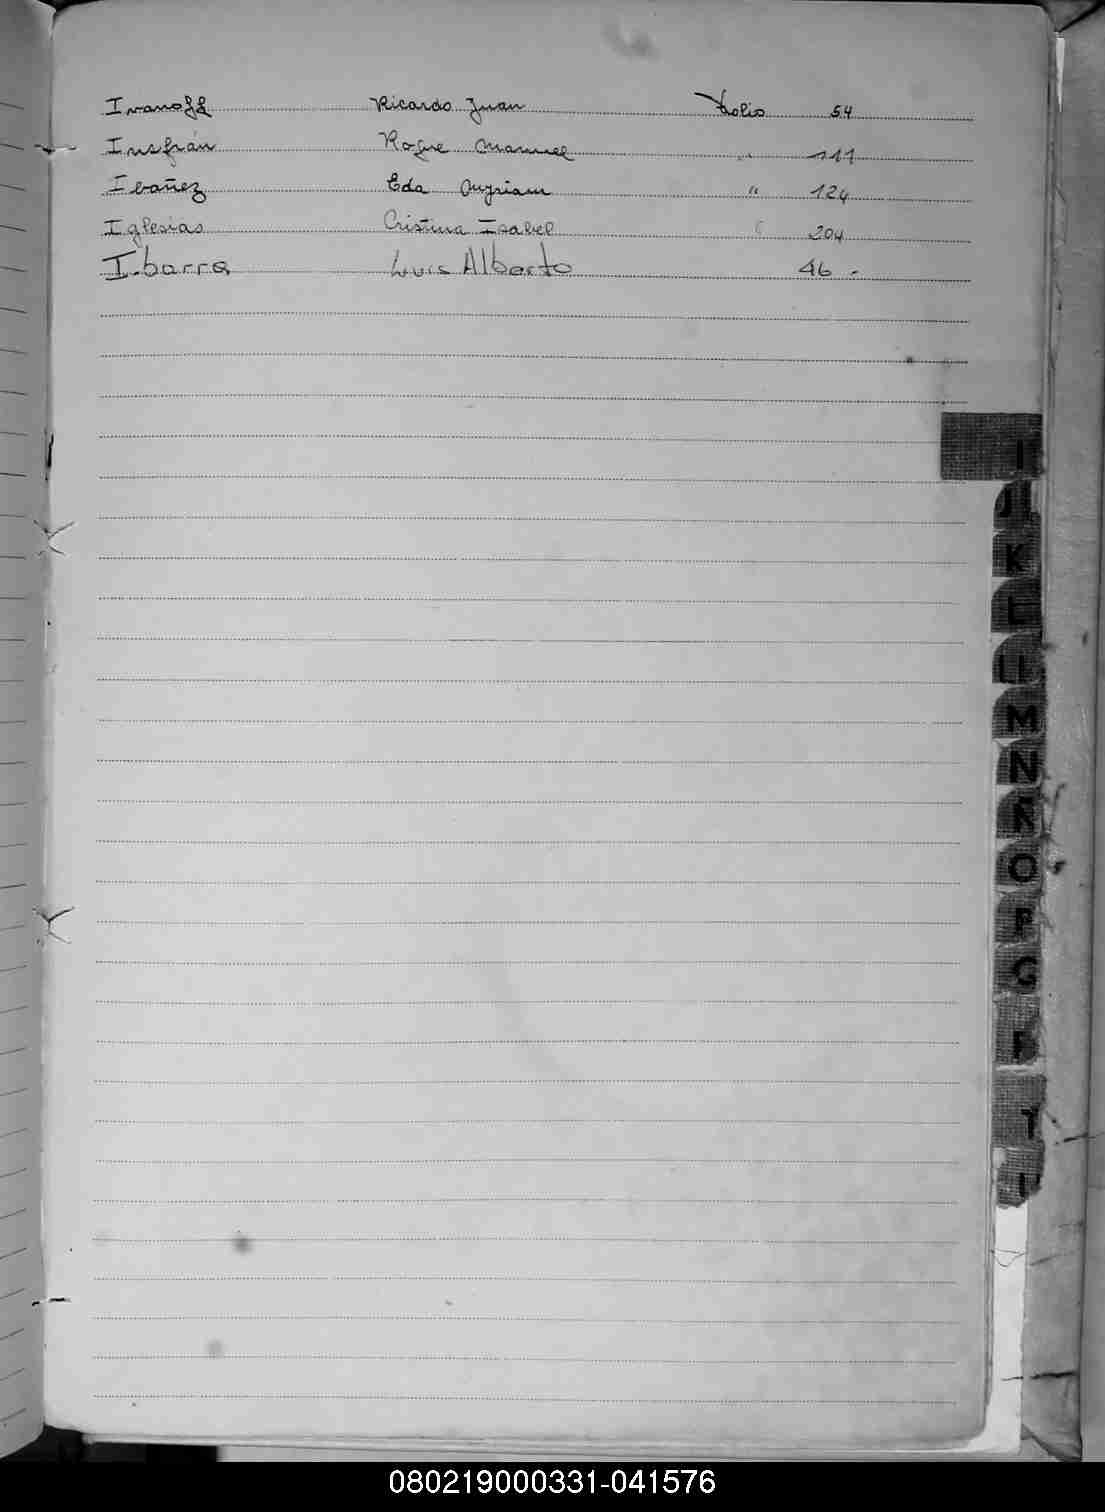 Ivanoff Ricardo Juan Folio 54
Insfrán Roque Manuel " 111
Ibañez Eda Myriam " 124
Iglesias Cristina Isabel " 204
Ibarra Luis Alberto 46 -
I
J
K
L
LL
M
N
Ñ
O
P
Q
R
T
U
080219000331-041576